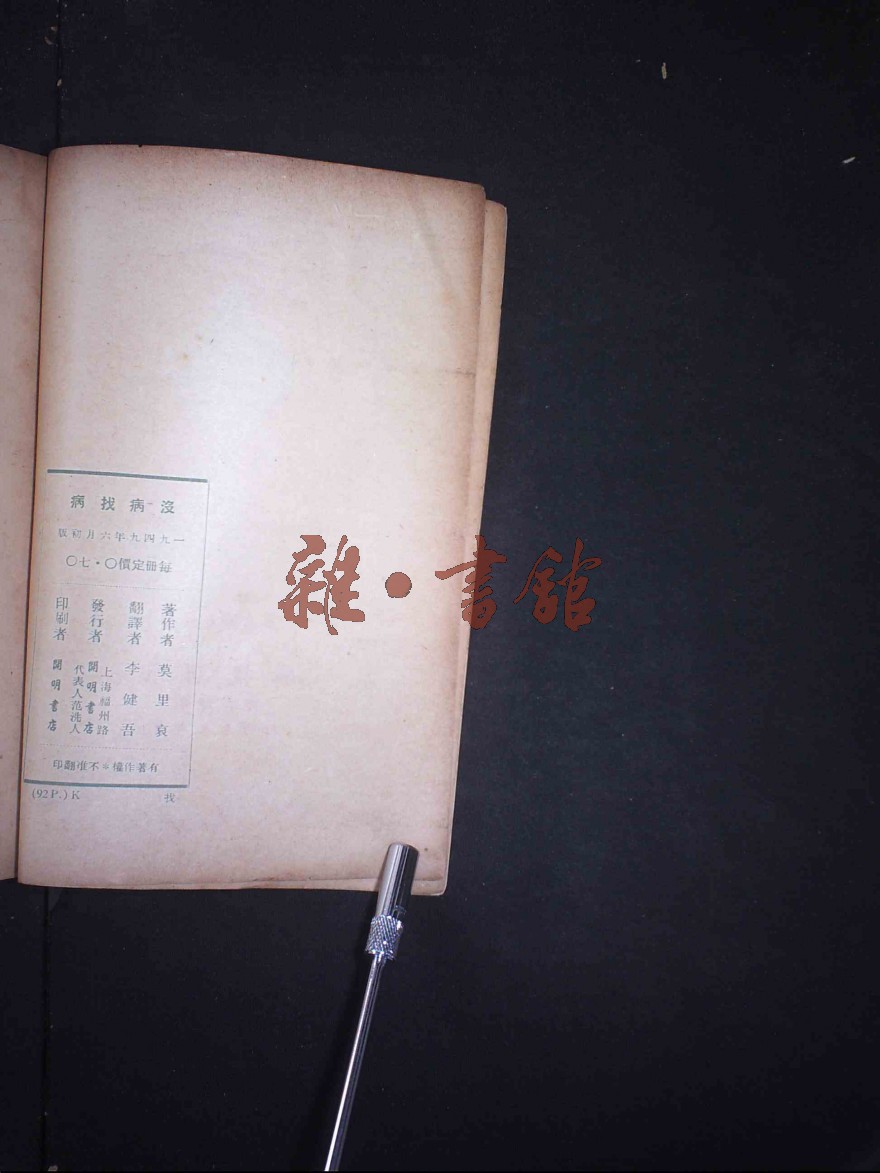 沒病找病
一九四九年六月初版
每冊定價〇·七〇
著作者 莫里哀
翻譯者 李健吾
發行者 上海福州路 開明書店 代表人范洗人
印刷者 開明書店
有著作權*不准翻印
(92P.)K 找
雜·書館